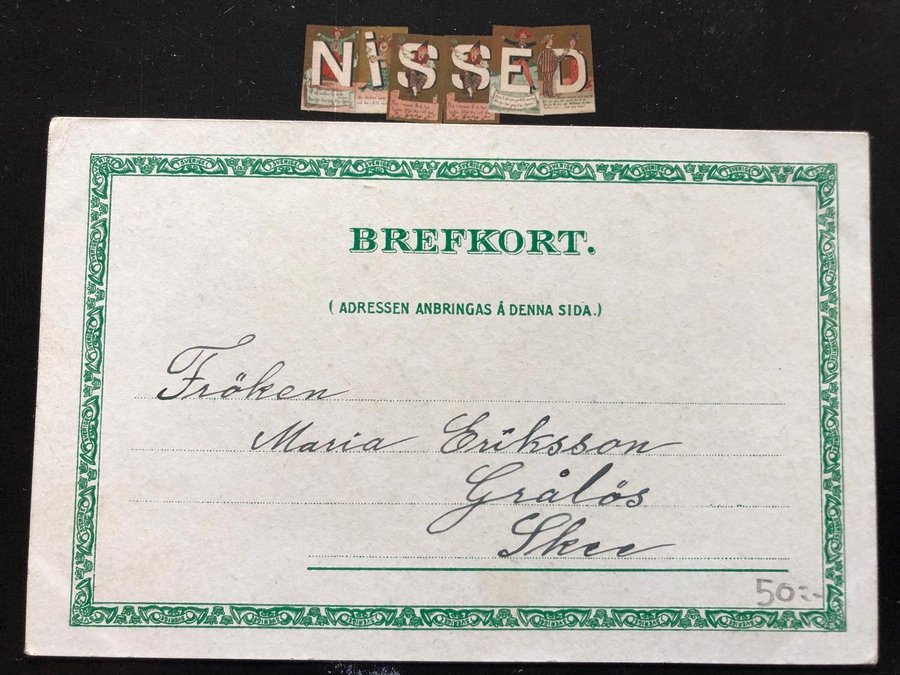 NISSED
BREFKORT.
( ADRESSEN ANBRINGAS Å DENNA SIDA.)
Fröken
Maria Eriksson
Grålös
Skee
50:-